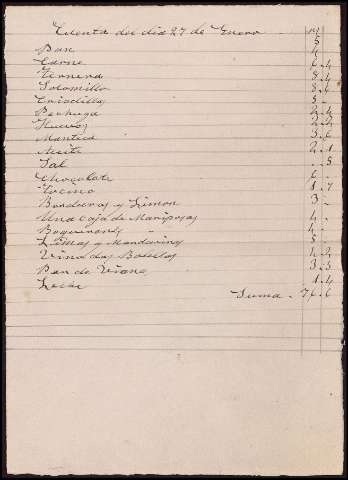 Cuenta del dia 27 de Enero
Pan 5
Carne 6.4
Ternera 8.4
Solomillo 8.6
Criadillas 5 -
Pechuga 2.4
Huevos 2.2
Manteca 3.6
Aceite 2.1
Sal . 8
Chocolate 6 -
Tocino 1.7
Verduras y Limon 3 -
Una caja de Mariposas 4 -
Boquerones 4 -
Limas y Mandarinas 5 -
Vino dos Botellas 4.2
Pan de Viena 3.3
Leche 1.4
Suma . 76.6